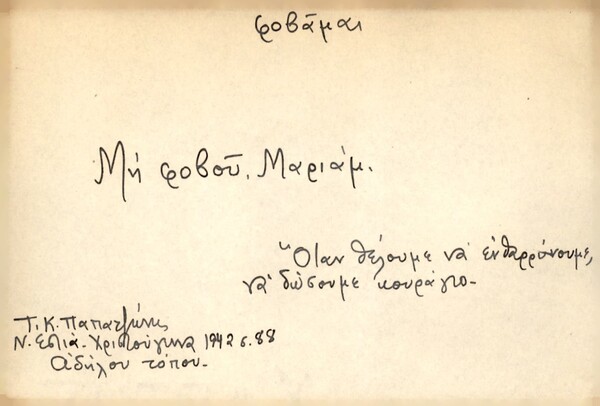 φοβᾶμαι
Μή φοβοῦ, Μαριάμ.
"Ὅταν θέλουμε νά ἐνθαρρύνουμε,
νά δώσουμε κουράγιο-
Τ. Κ. Παπατζώνης
Ν. Εστιά- Χριστούγεννα 1942 σ. 88
Ἀδήλου τόπου-